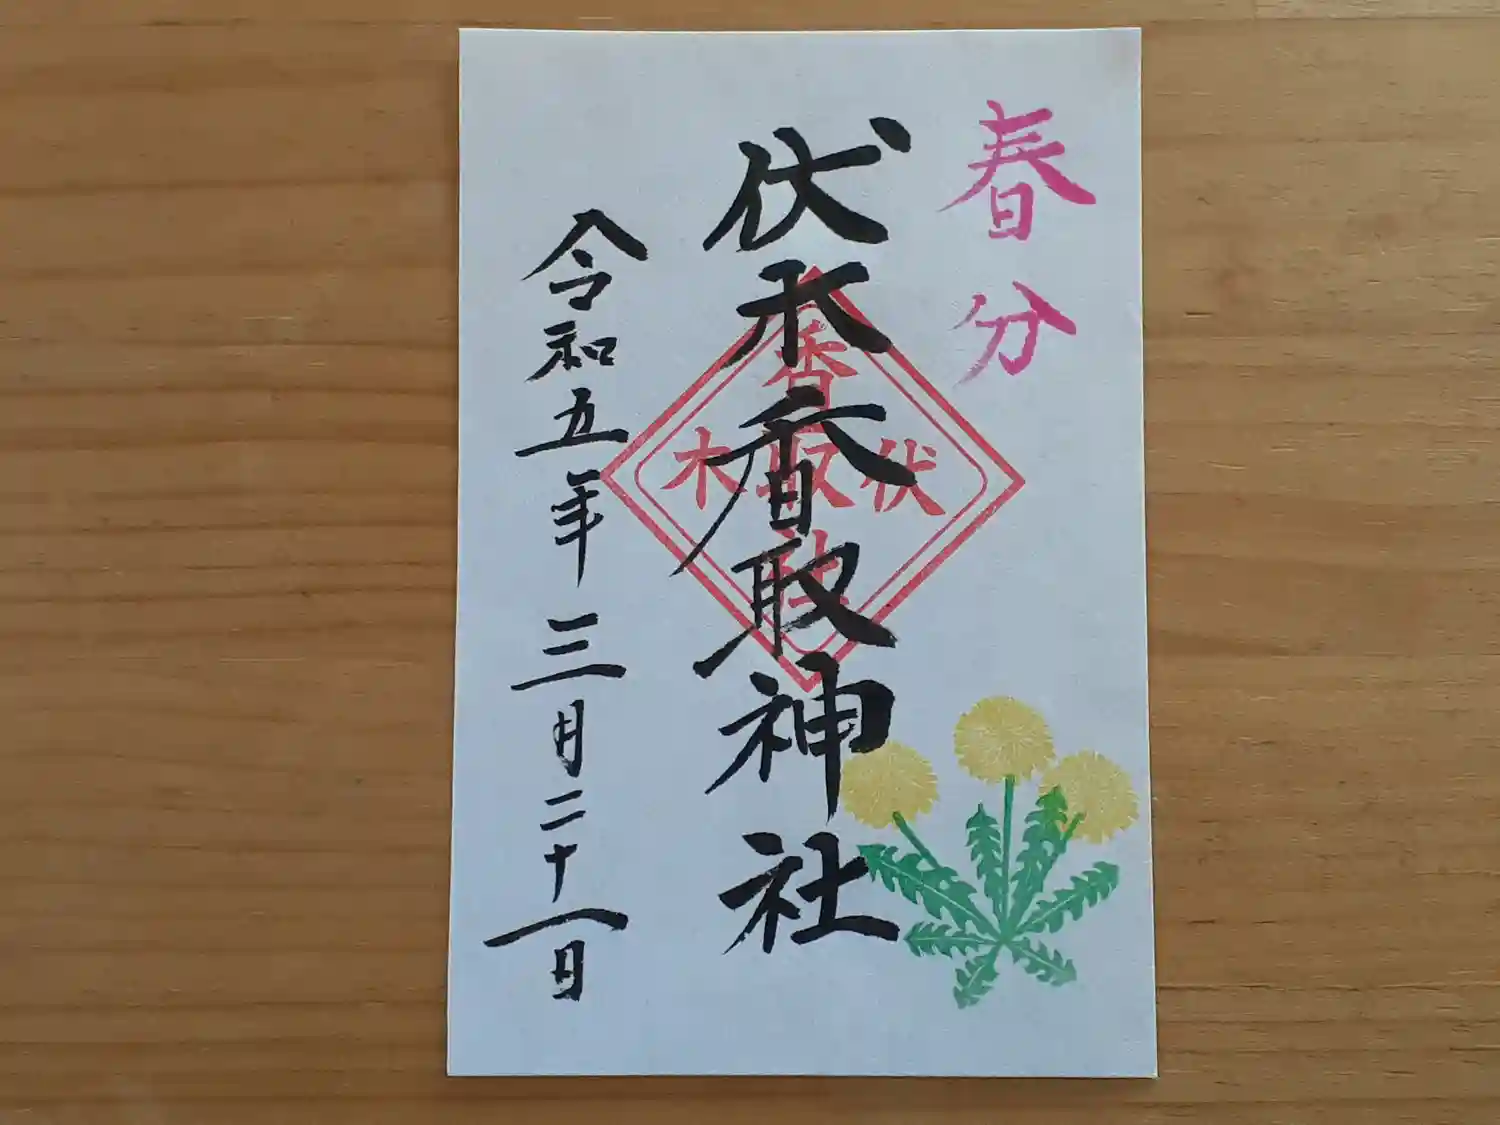 春分
伏木香取神社
香取社
伏木
令和五年三月二十一日